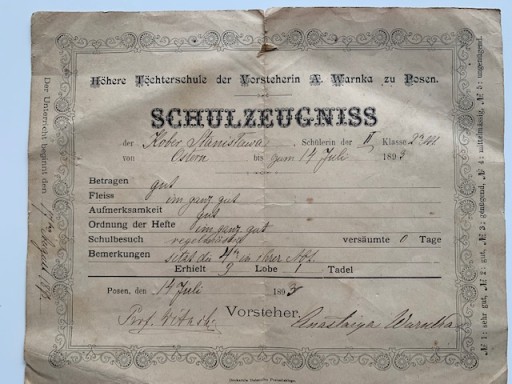 Höhere Töchterschule der Vorsteherin A. Warnka zu Posen.
SCHULZEUGNISS
der Kober Stanisława, Schülerin der II Klasse
von Ostern bis zum 14 Juli 1893
Betragen gut
Fleiss im ganz gut
Aufmerksamkeit gut
Ordnung der Hefte im ganz gut
Schulbesuch regelmässig versäumte 0 Tage
Bemerkungen sitzt die 4te in ihrer Abt.
Erhielt 9 Lobe 1 Tadel
Posen, den 14 Juli 1893
Vorsteher,
Prof. Anastazya Warnka
Der Unterricht beginnt den
№ 1: sehr gut, № 2: gut, № 3: genügend, № 4: mittelmässig, № 5: ungenügend.